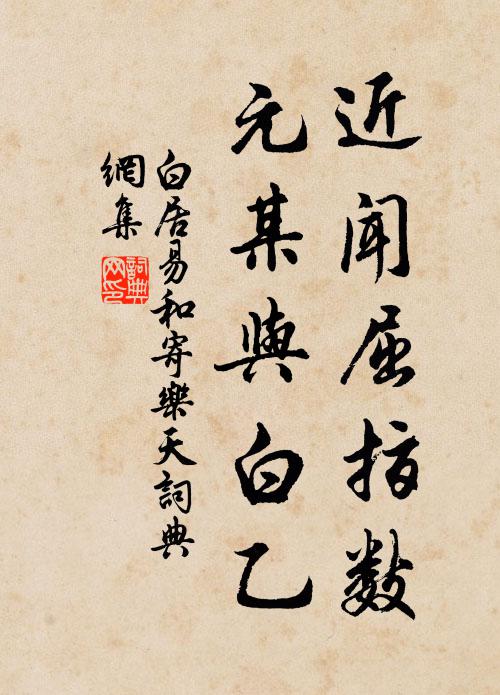 近闻屈指数
元某與白乙
白居易和寄樂天詞典
網集
詞典
网印